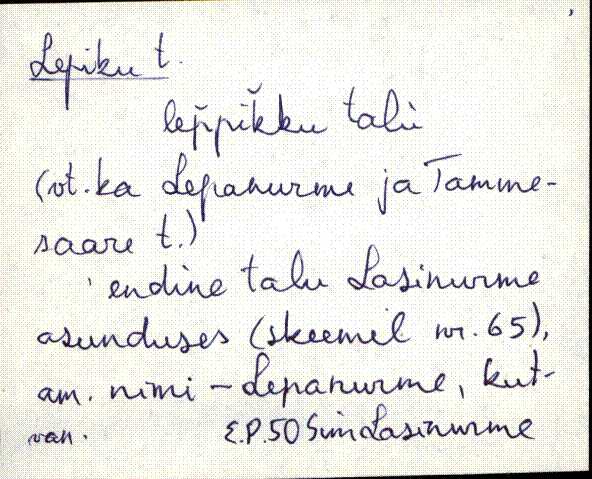 Lepiku t.
lep̌pik̆ku talu̇̀
(vt. ka Lepanurme ja Tamme-
saare t.)
endine talu Lasinurme
asunduses (skeemil nr. 65),
am. nimi – Lepanurme, kut-
van. E.P.50 Sim Lasinurme